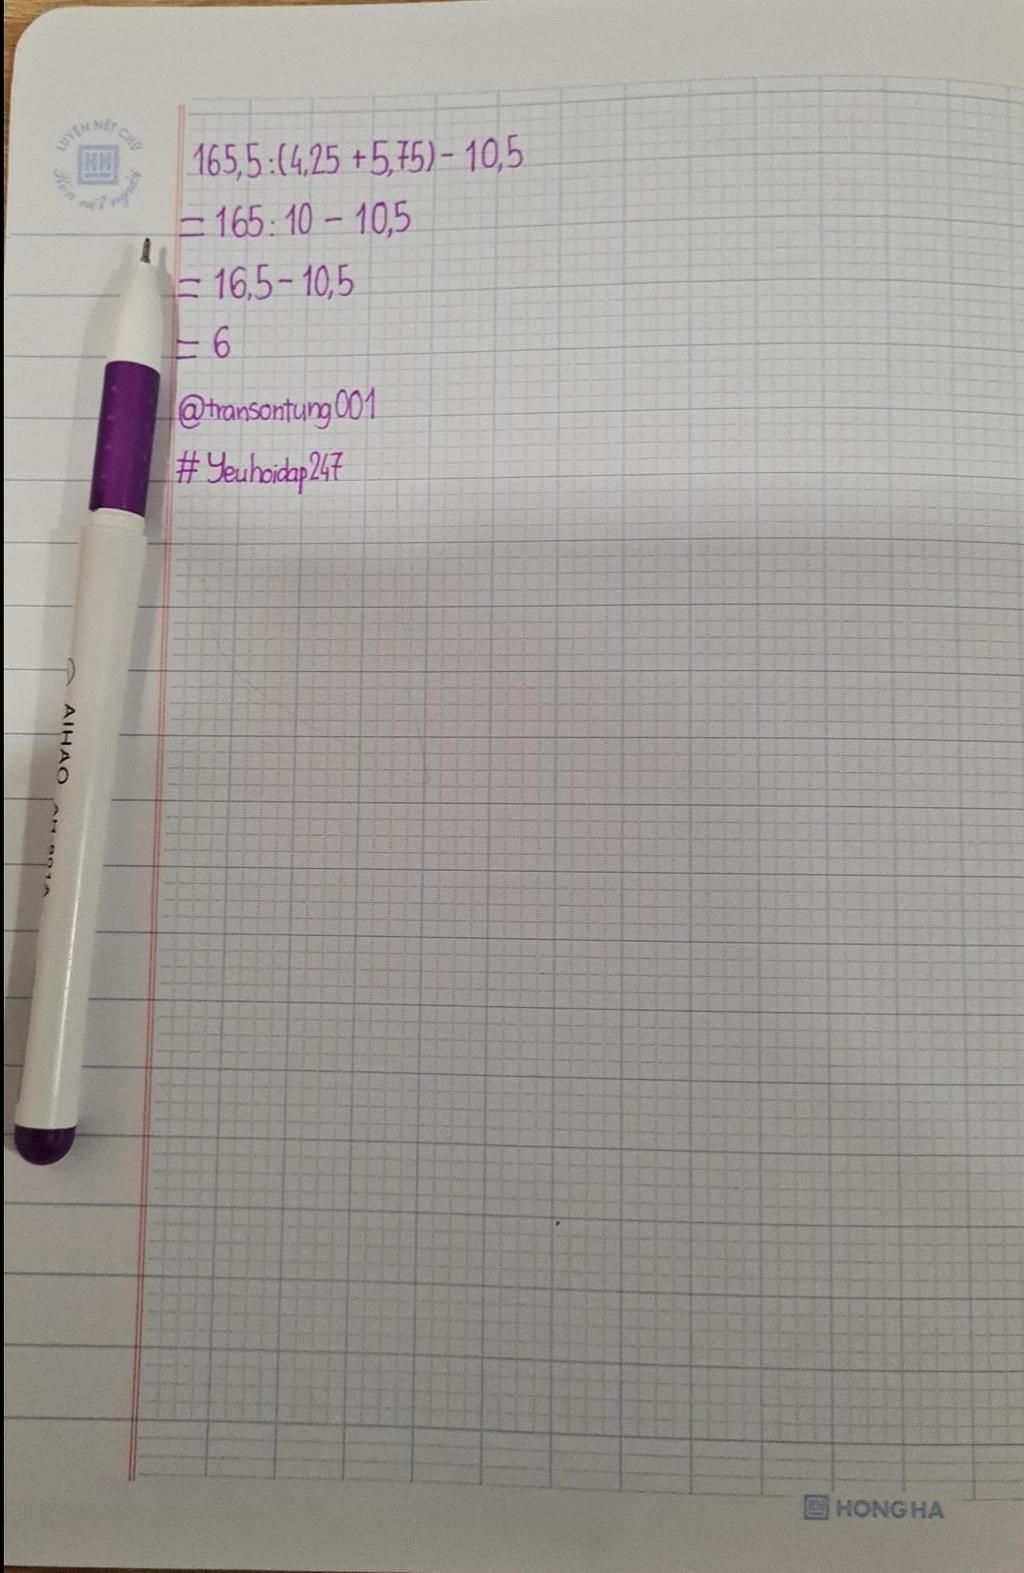 LUYỆN NÉT CHỮ
HN
Rèn nết người
165,5:(4,25 + 5,75) - 10,5
= 165:10 - 10,5
= 16,5 - 10,5
= 6
@transontung001
# Yeuhoidap247
AIHAO
HONG HA